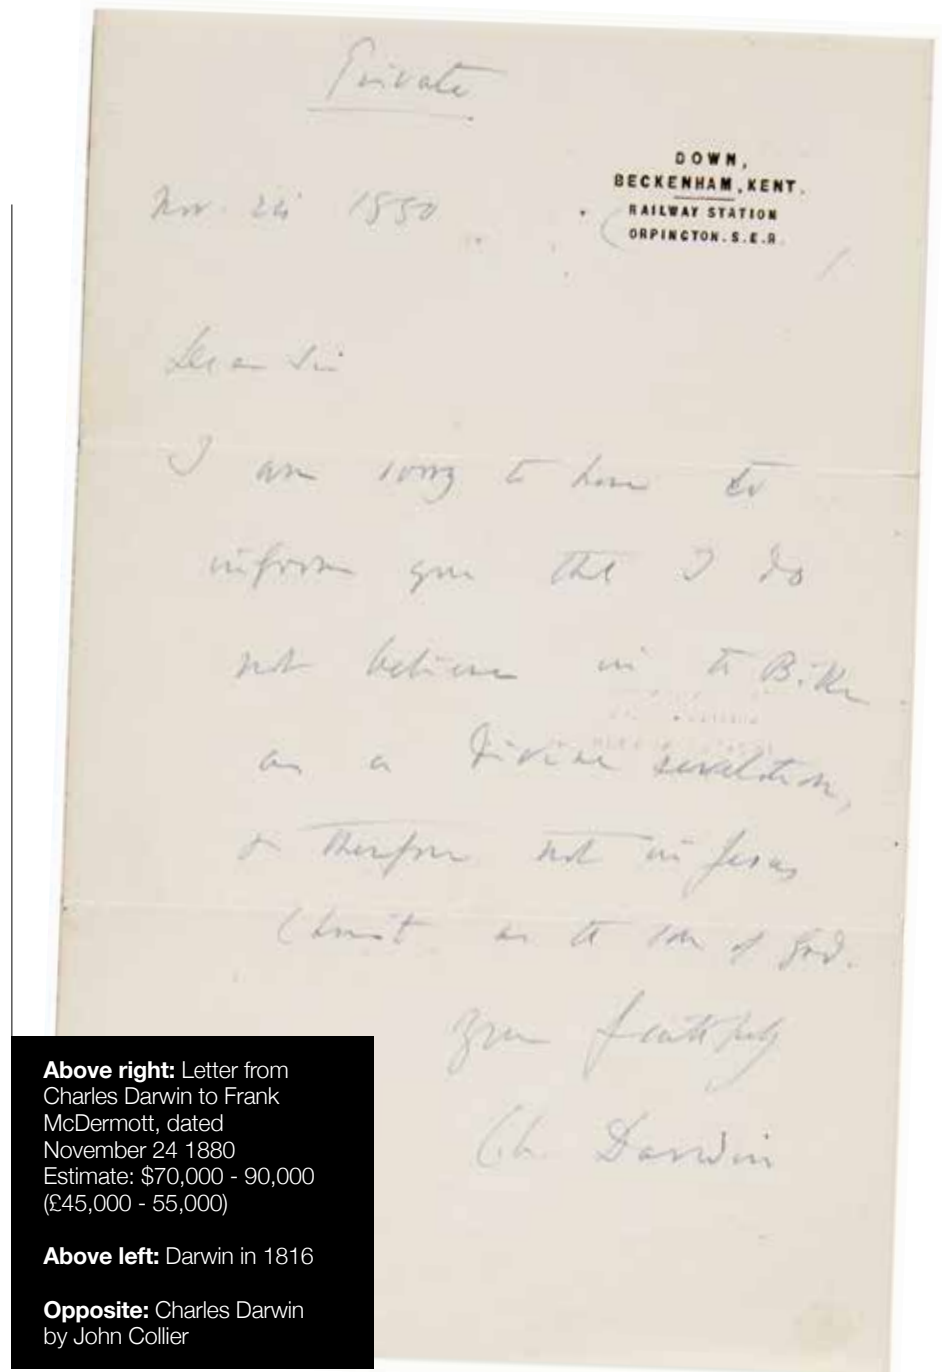 Private
DOWN,
BECKENHAM, KENT.
RAILWAY STATION
ORPINGTON. S.E.R.
Nov. 24 1880
Dear Sir
I am sorry to have to
inform you that I do
not believe in the Bible
as a divine revelation,
& therefore not in Jesus
Christ as the son of God.
Yours faithfully
Ch. Darwin
Above right: Letter from
Charles Darwin to Frank
McDermott, dated
November 24 1880
Estimate: $70,000 - 90,000
(£45,000 - 55,000)
Above left: Darwin in 1816
Opposite: Charles Darwin
by John Collier